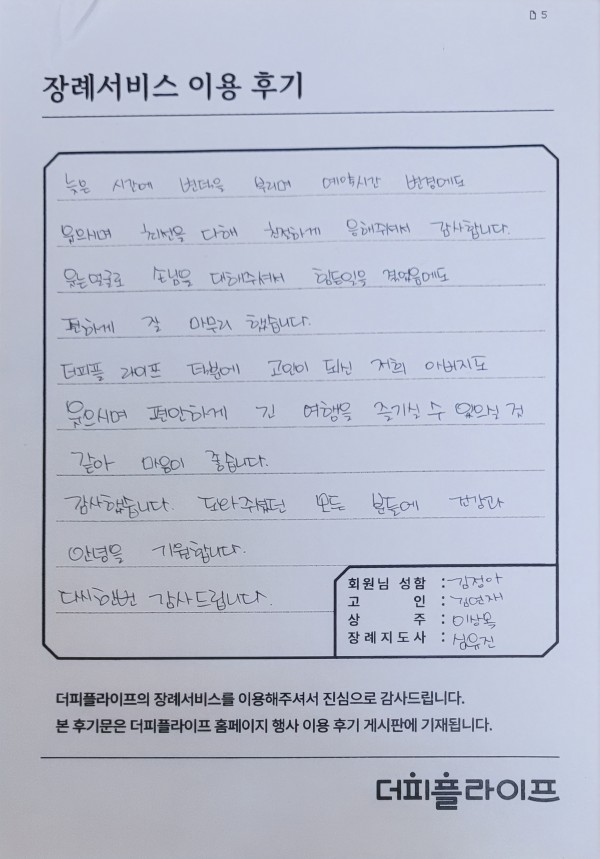 5
장례서비스 이용 후기
늦은 시간에 번덕을 부리며 예약시간 변경에도
웃으시며 최선을 다해 친절하게 응해주셔서 감사합니다.
웃는얼굴로 손님을 대해주셔서 힘든일을 겪었음에도
편하게 잘 마무리 했습니다.
더피플 라이프 덕분에 고인이 되신 저희 아버지도
웃으시며 편안하게 긴 여행을 즐기실 수 있으실 것
같아 마음이 좋습니다.
감사했습니다. 도와주셨던 모든 분들에 건강과
안녕을 기원합니다.
다시한번 감사드립니다.
회원님 성함 : 김정아
고 인 : 김연재
상 주 : 이상옥
장례지도사 : 심유진
더피플라이프의 장례서비스를 이용해주셔서 진심으로 감사드립니다.
본 후기문은 더피플라이프 홈페이지 행사 이용 후기 게시판에 기재됩니다.
더피플라이프